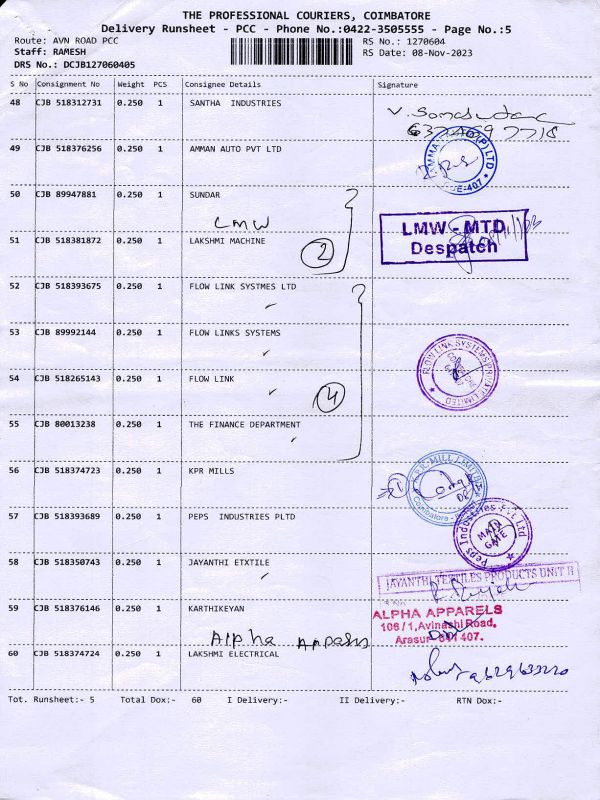 THE PROFESSIONAL COURIERS, COIMBATORE
Delivery Runsheet - PCC - Phone No.:0422-3505555 - Page No.:5
Route: AVN ROAD PCC RS No.: 1270604
Staff: RAMESH RS Date: 08-Nov-2023
DRS No.: DCJB127060405
S No Consignment No Weight PCS Consignee Details Signature
48 CJB 518312731 0.250 1 SANTHA INDUSTRIES
49 CJB 518376256 0.250 1 AMMAN AUTO PVT LTD
50 CJB 89947881 0.250 1 SUNDAR
LMW
LMW - MTD
Despatch
51 CJB 518381872 0.250 1 LAKSHMI MACHINE
2
52 CJB 518393675 0.250 1 FLOW LINK SYSTMES LTD
53 CJB 89992144 0.250 1 FLOW LINKS SYSTEMS
FLOW LINK SYSTEMS PRIVATE LIMITED
54 CJB 518265143 0.250 1 FLOW LINK
4
55 CJB 80013238 0.250 1 THE FINANCE DEPARTMENT
56 CJB 518374723 0.250 1 KPR MILLS
K.P.R. MILL LIMITED
Coimbatore
57 CJB 518393689 0.250 1 PEPS INDUSTRIES PLTD
Peps Industries Pvt Ltd
MAIN GATE
58 CJB 518350743 0.250 1 JAYANTHI ETXTILE
JAYANTHI TEXTILES PRODUCTS UNIT II
59 CJB 518376146 0.250 1 KARTHIKEYAN
ALPHA APPARELS
106/1, Avinashi Road,
Arasur - 641 407.
Alpha Appash
60 CJB 518374724 0.250 1 LAKSHMI ELECTRICAL
9629633220
Tot. Runsheet:- 5 Total Dox:- 60 I Delivery:- II Delivery:- RTN Dox:-